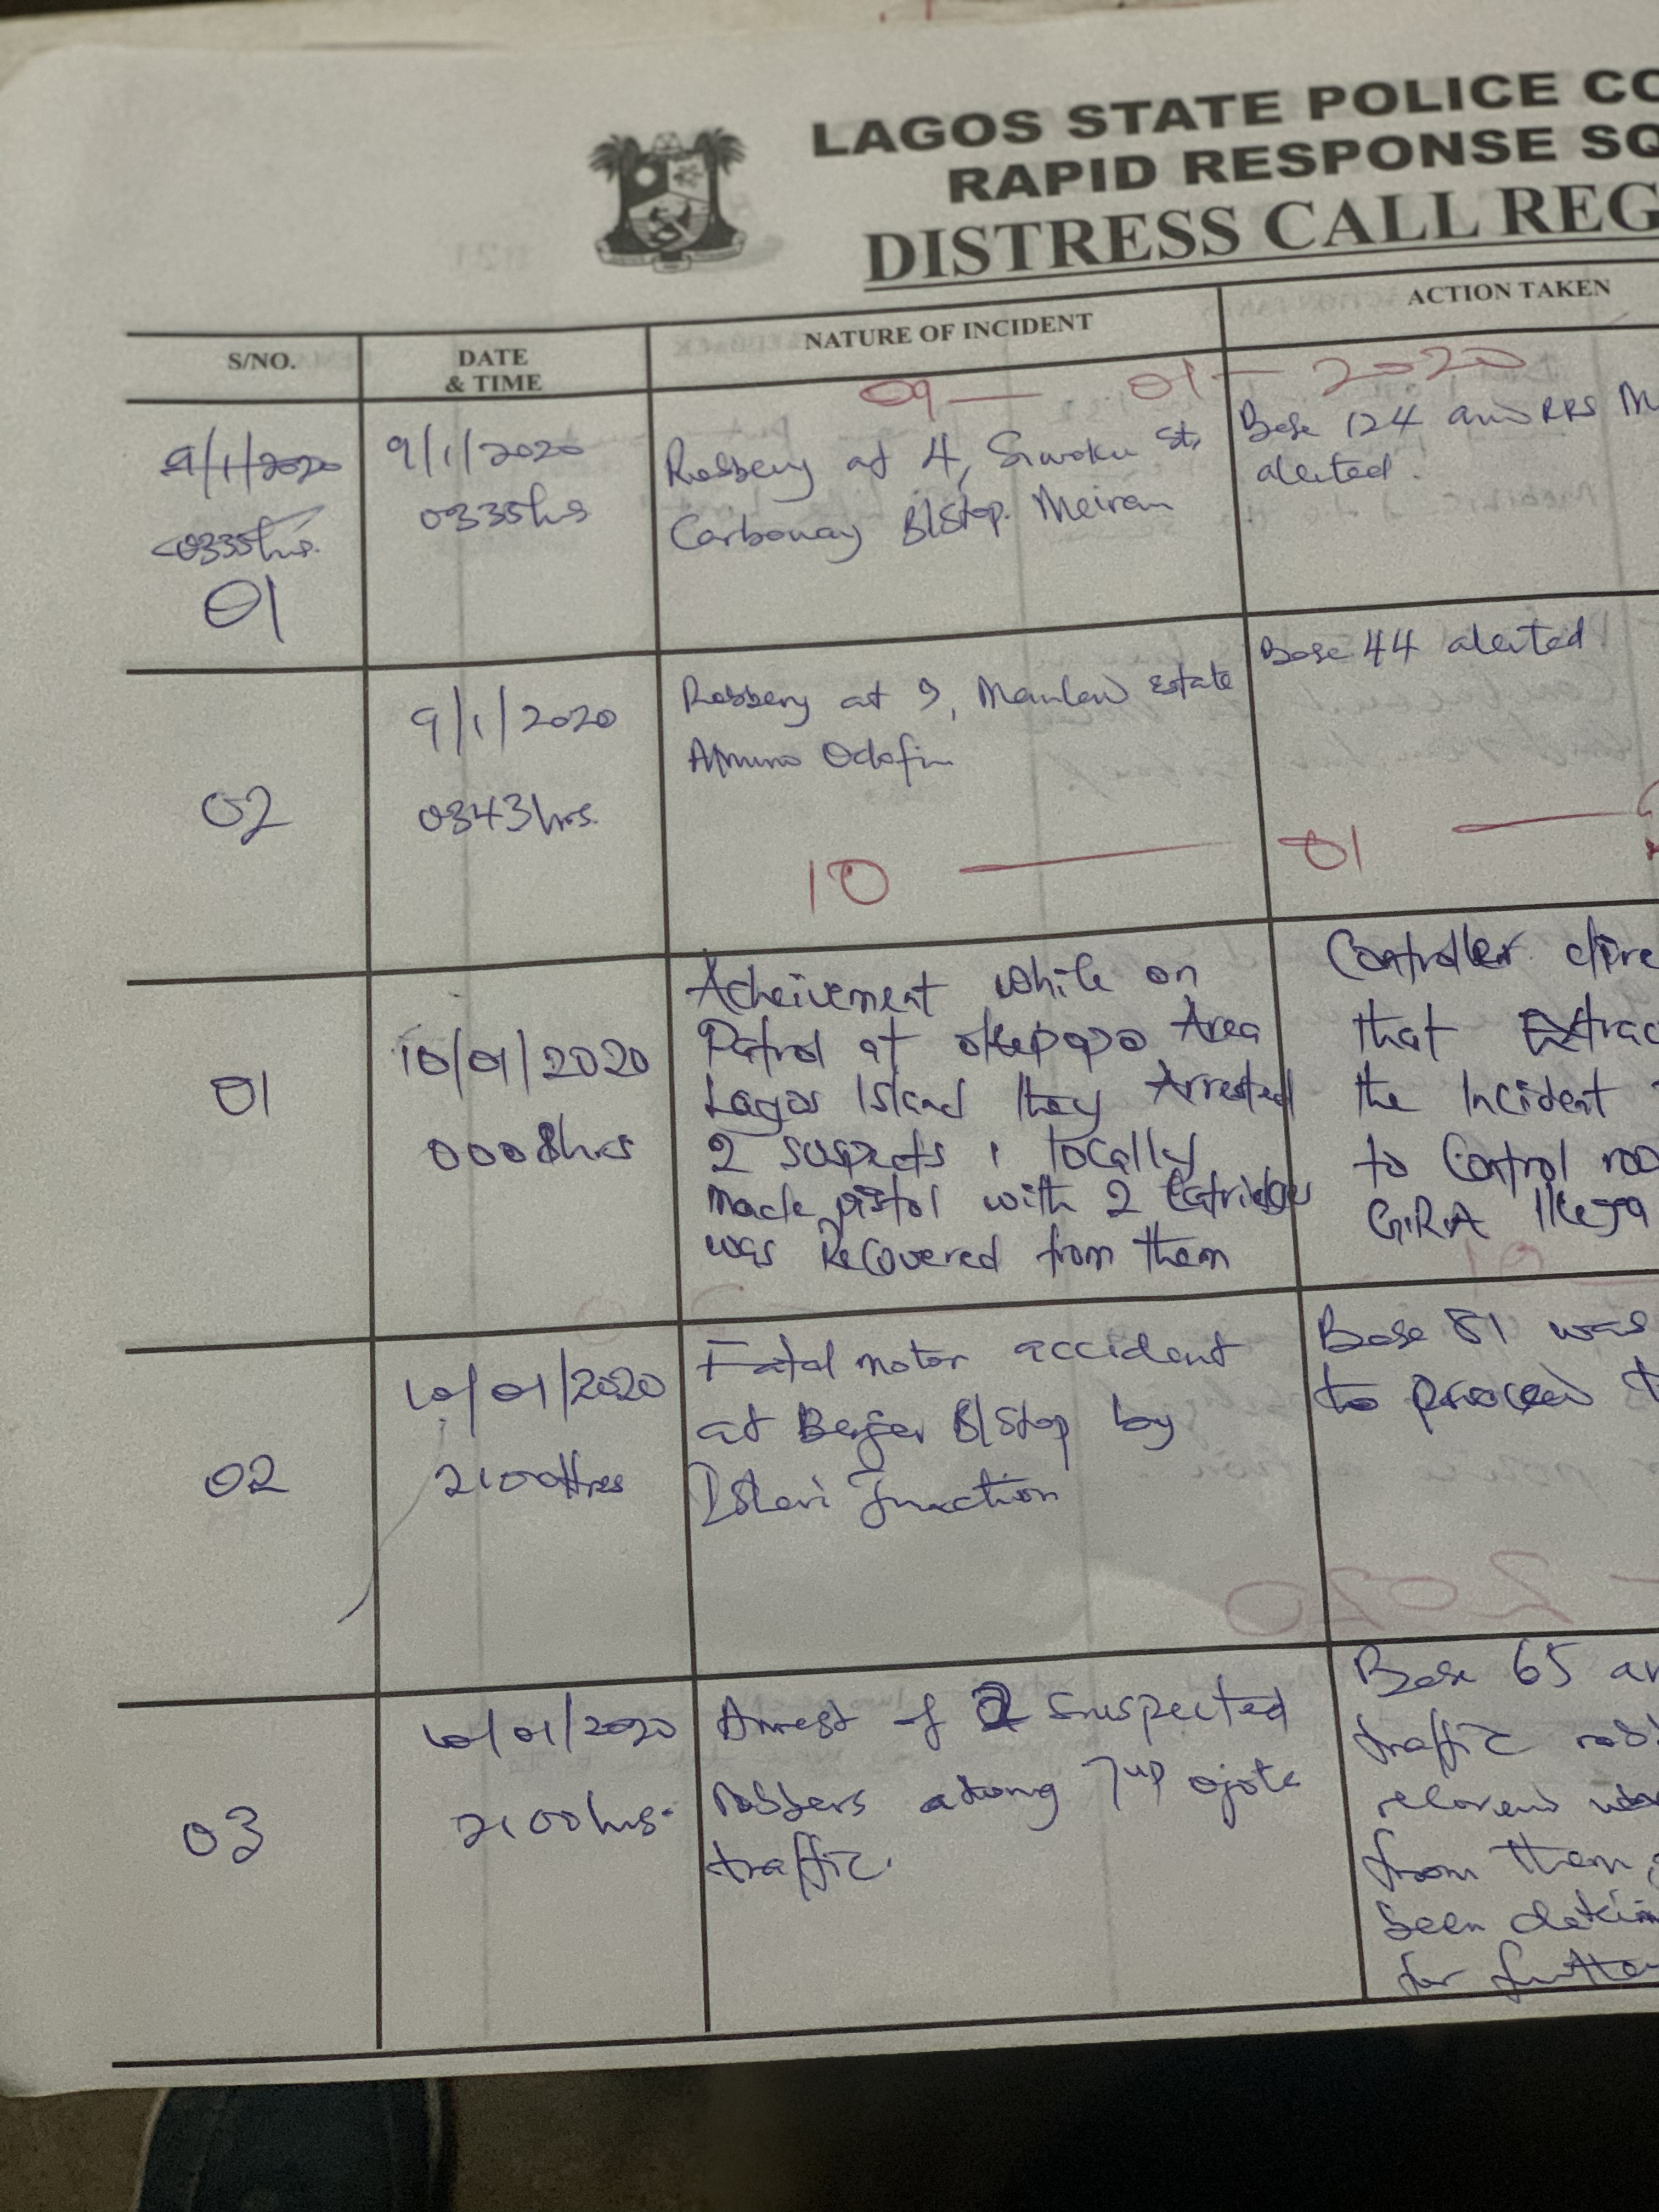 LAGOS STATE POLICE CO
RAPID RESPONSE SQ
DISTRESS CALL REG
S/NO.
DATE
& TIME
NATURE OF INCIDENT
ACTION TAKEN
09 — 01 — 2020
9/1/2020
0335hrs.
01
9/1/2020
0335hrs
Robbery at 4, St,
B/Stop. Meiran
Base 124 and RRS M
alerted.
02
9/1/2020
0343hrs.
Robbery at 9, Estate
Amuwo Odofin
Base 44 alerted
10 — 01 —
01
10/01/2020
0008hrs
Acheivement while on
Patrol at okepopo Area
Lagos Island they Arrested
2 suspects 1 locally
made pistol with 2 Catridges
was Recovered from them
Controller dire
that Extrac
the Incident
to Control roo
G.R.A Ikeja
02
10/01/2020
2100Hrs
Fatal motor accident
at Berger B/Stop by
Isheri Junction
Base 81 was
to proceed t
03
10/01/2020
2100hrs.
Arrest of 2 Suspected
robbers along 7up ojota
traffic.
Base 65 ar
traffic rob
from them,
been detain
for further